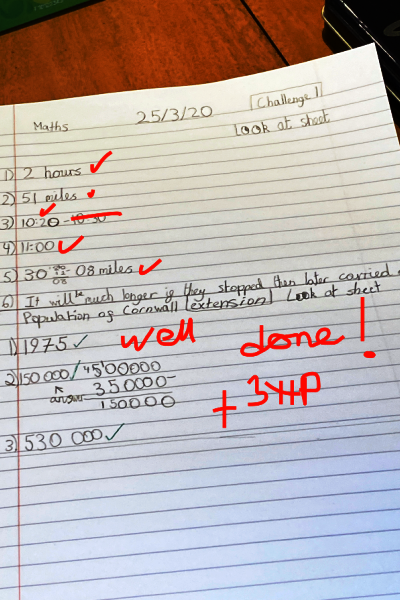 Maths 25/3/20 Challenge 1
Look at sheet
1) 2 hours
2) 51 miles
3) 10:20 - 10:30
4) 11:00
5) 30 08 miles
6) It will be much longer if they stopped then later carried
Population of Cornwall (extension) Look at sheet
1) 1975 well done!
2) 150 000 4500000
answer 350000-
150000 + 3HP
3) 530 000